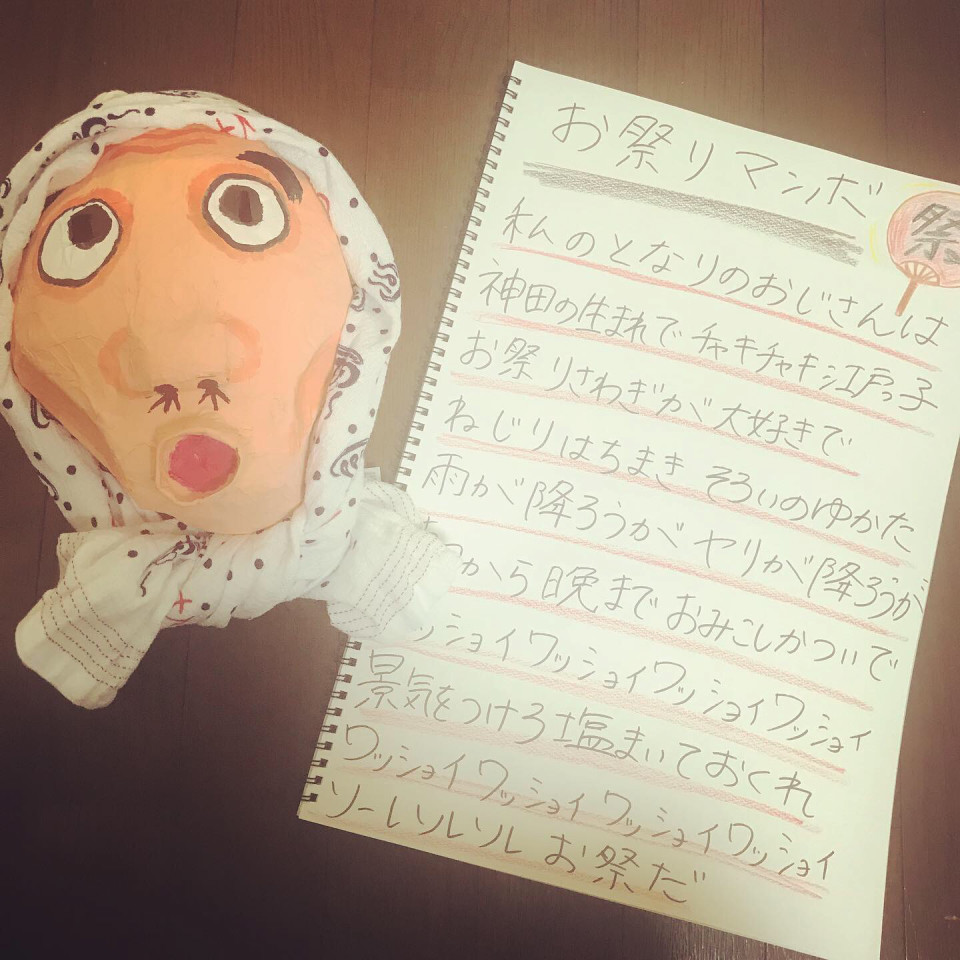 お祭りマンボ
祭
私のとなりのおじさんは
神田の生まれでチャキチャキ江戸っ子
お祭りさわぎが大好きで
ねじりはちまき そろいのゆかた
雨が降ろうがヤリが降ろうが
から晩までおみこしかついで
ッショイワッショイワッショイワッショイ
景気をつけろ塩まいておくれ
ワッショイワッショイワッショイワッショイ
ソーレソレソレお祭だ